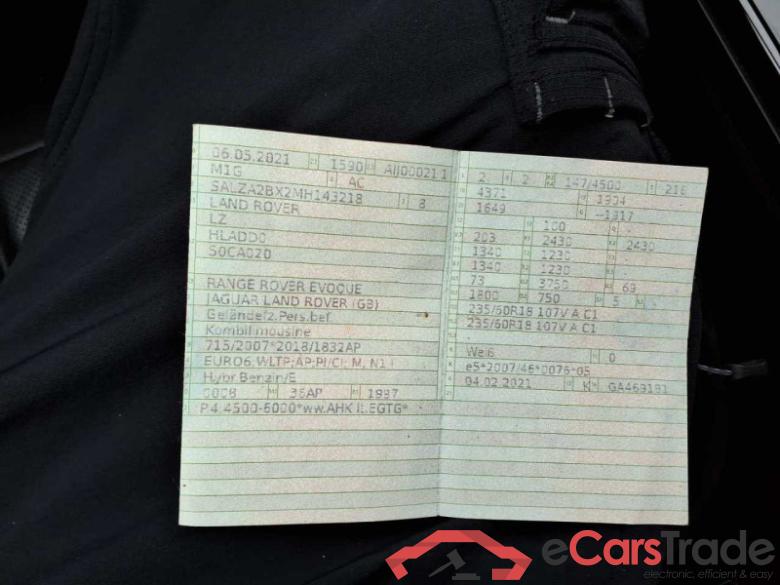 06.05.2021 1590 AIJ00021 1
M1G AC
SALZA2BX2MH143218 8
LAND ROVER
LZ
HLADD0
S0CA020
RANGE ROVER EVOQUE
JAGUAR LAND ROVER (GB)
Geländefz.Pers.bef
Kombilimousine
715/2007*2018/1832AP
EURO6 WLTP;AP;PI/CI; M, N1 I
Hybr.Benzin/E
0008 36AP 1997
P.4:4500-6000*ww.AHK lt.EGTG*
2 2 147/4500 216
4371 1904
1649 -1317
100
203 2430 2430
1340 1230
1340 1230
73 3750 69
1800 750 5
235/60R18 107V A C1
235/60R18 107V A C1
Weiß 0
e5*2007/46*0076*05
04.02.2021 K GA469191
eCarsTrade
electronic, efficient & easy